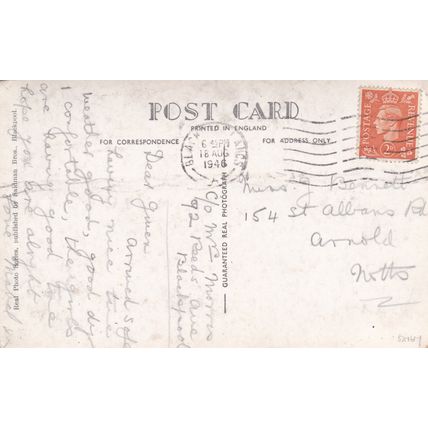 POST CARD
PRINTED IN ENGLAND
FOR CORRESPONDENCE
FOR ADDRESS ONLY
6 PM
18 AUG
1946
POSTAGE
REVENUE
Miss G Bennett
154 St Albans Rd
Arnold
Notts
C/o Mrs Morris
Ave
Blackpool
Dear Gwen
Arrived safe
having nice time
weather good, good digs
comfortable, 
are having good time
hope you are alright
love
GUARANTEED REAL PHOTOGRAPH
Real Photo Series, published by Bros., Blackpool.